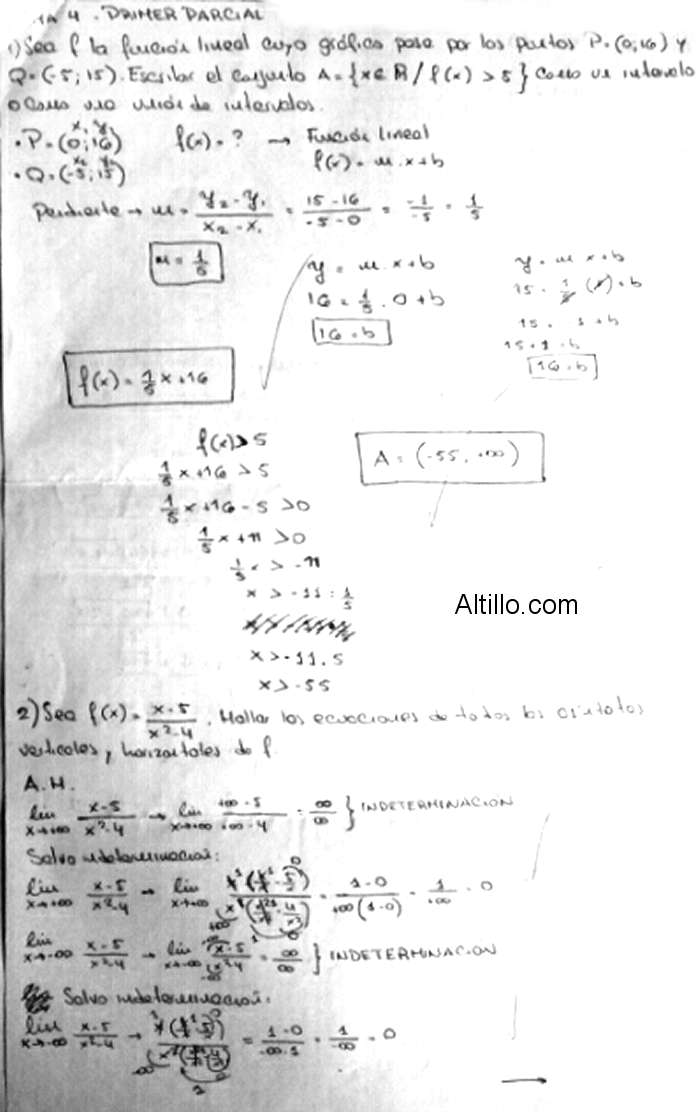 4. PRIMER PARCIAL
1) Sea f la función lineal cuyo gráfico pasa por los puntos P=(0;16) y
Q=(-5;15). Escribir el conjunto A={x∈R/f(x)>5} como un intervalo
o como una unión de intervalos.
• P=(0;16) f(x)=? → Función lineal
x₁ y₁
f(x)=m.x+b
• Q=(-5;15)
x₂ y₂
Pendiente → m = (y₂-y₁)/(x₂-x₁) = (15-16)/(-5-0) = -1/-5 = 1/5
m = 1/5
y = m.x+b
16 = 1/5 . 0+b
16=b
y=m x+b
15 = 1/5 +b
15 = 1+b
15+1=b
16=b
f(x) = 1/5 x+16
f(x)>5
1/5 x+16 >5
A = (-55, +∞)
1/5 x+16-5 >0
1/5 x+11 >0
1/5 x > -11
x > -11 : 1/5
x>-11.5
x>-55
Altillo.com
2) Sea f(x)= (x-5)/(x²-4). Hallar las ecuaciones de todas las asíntotas
verticales y horizontales de f.
A.H.
lim x→+∞ (x-5)/(x²-4) → lim x→+∞ (+∞-5)/(+∞-4) = ∞/∞ } INDETERMINACION
Salvo indeterminación:
lim x→+∞ (x-5)/(x²-4) → lim x→+∞ x(x/x - 5/x)/x²(x²/x² - 4/x²) = (1-0)/(+∞(1-0)) = 1/+∞ = 0
lim x→-∞ (x-5)/(x²-4) → lim x→-∞ (x-5)/(x²-4) = ∞/∞ } INDETERMINACION
Salvo indeterminación:
lim x→-∞ (x-5)/(x²-4) → = (1-0)/(-∞.1) = 1/-∞ = 0
→